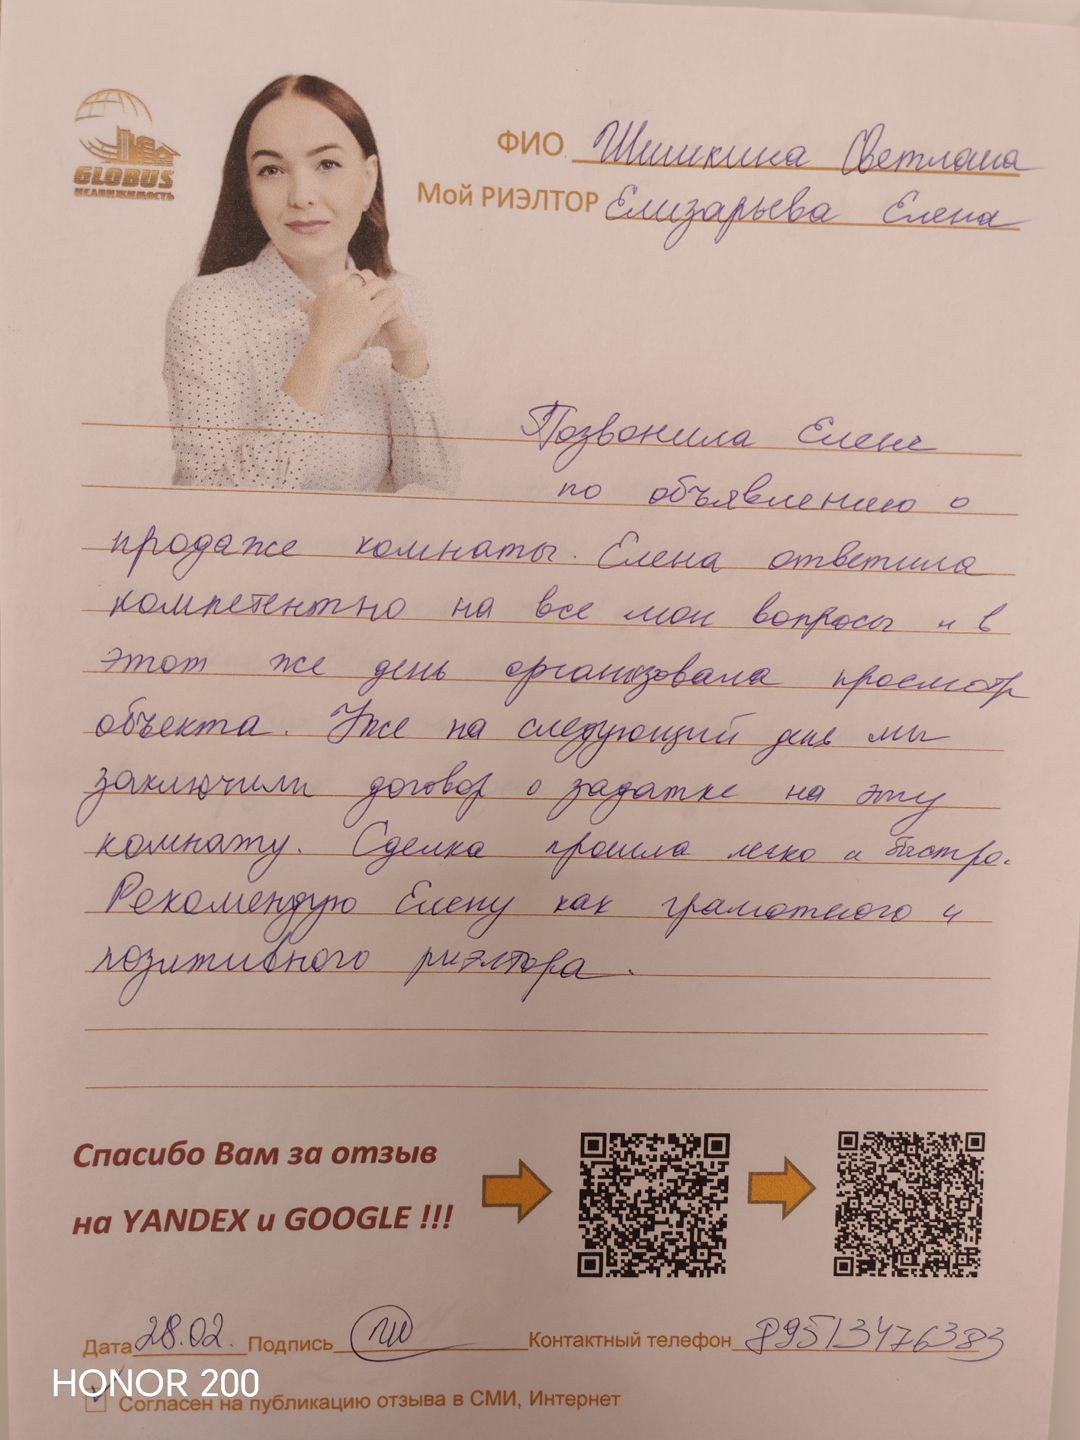 GLOBUS
НЕДВИЖИМОСТЬ
ФИО Шишкина Светлана
Мой РИЭЛТОР Елизарьева Елена
Позвонила Елене
по объявлению о
продаже комнаты. Елена ответила
компетентно на все мои вопросы и в
этот же день организовала просмотр
объекта. Уже на следующий день мы
заключили договор о задатке на эту
комнату. Сделка прошла легко и быстро.
Рекомендую Елену как грамотного и
позитивного риэлтора.
Спасибо Вам за отзыв
на YANDEX и GOOGLE !!!
Дата 28.02. Подпись Контактный телефон 89513476383
HONOR 200
Согласен на публикацию отзыва в СМИ, Интернет